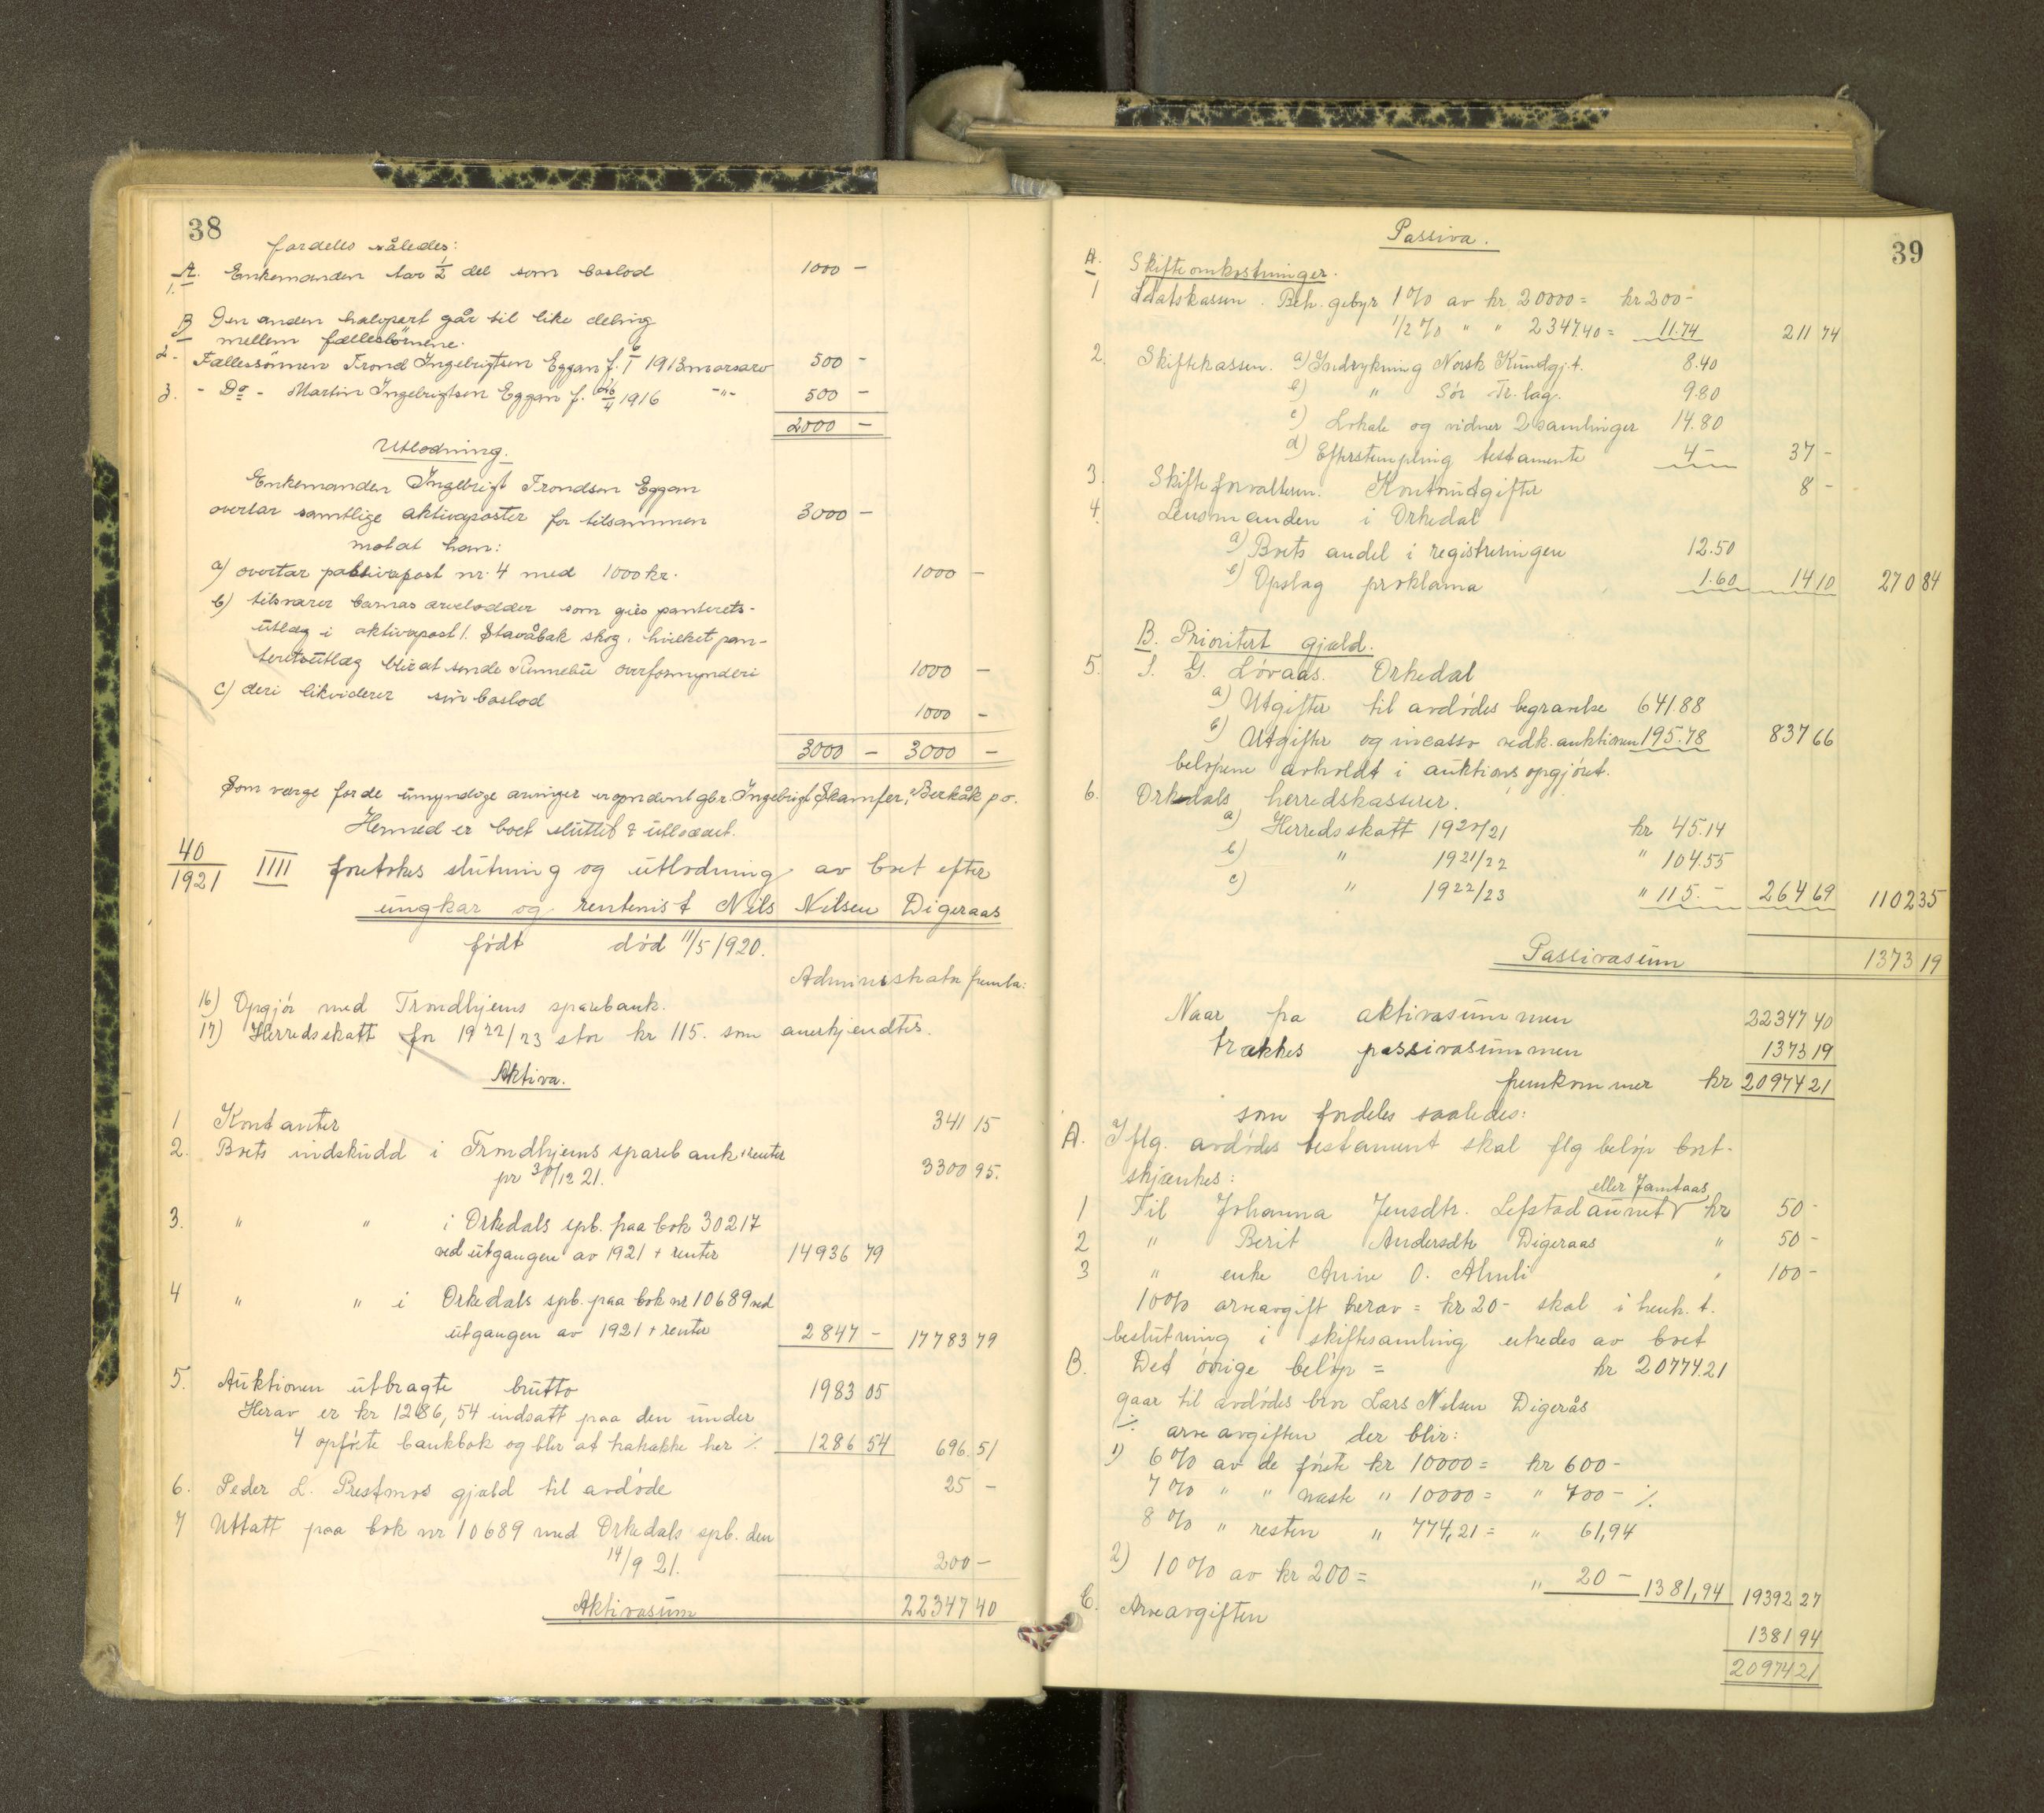 38
fordeles således:
A. Enkemanden tar 1/2 del som boslod 1000 -
1.
B Den anden halvpart går til like deling
mellem fællesbörnene.
2- Fællessönnen Trond Ingebrigtsen Eggan f. 6/1 1913 morsarv 500 -
3. - Do - Martin Ingebrigtsen Eggan f. 26/4 1916 -"- 500 -
2000 -
Utlodning.
Enkemanden Ingebrigt Trondsen Eggan
overtar samtlige aktivaposter for tilsammen 3000 -
mot at han:
a) overtar passivapost nr. 4 med 1000 kr. 1000 -
b) tilsvarer barnas arvelodder som gies panterets-
utlæg i aktivapost 1. Stavåbak skog, hvilket pan-
teretsutlæg blir at sende Rennebu overformynderi 1000 -
c) deri likviderer sin boslod 1000 -
3000 - 3000 -
Som verge for de umyndige arvinger er opnævnt gbr. Ingebrigt Skamfer, Berkåk p.o.
Hermed er boet sluttet & utloddet.
40/1921 IIII foretokes slutning og utlodning av boet efter
ungkar og rentenist Nils Nilsen Digeraas
født død 11/5 1920.
Administrator fremla:
16) Opgjör med Trondhjems sparebank.
17) Herredsskatt for 1922/23 stor kr 115. som anerkjendtes.
Aktiva.
1 Kontanter 341 15
2. Boets indskudd i Trondhjems sparebank + renter
pr 30/12 21. 3300 95.
3. " " i Orkedals spb. paa bok 30217
ved utgangen av 1921 + renter 14936 79
4 " " i Orkedals spb. paa bok nr 10689 ved
utgangen av 1921 + renter 2847 - 17783 79
5. Auktionen utbragte brutto 1983 05
Herav er kr 1286,54 indsatt paa den under
4 opförte bankbok og blir at fratrække her ./. 1286 54 696 51
6. Peder L. Prestmos gjæld til avdøde 25 -
7 Uttatt paa bok nr 10689 med Orkedals spb. den
14/9 21. 200 -
Aktivasum 22347 40
39
Passiva.
A. Skifteomkostninger.
1 Statskassen. Beh. gebyr 1% av kr 20000 = kr 200-
1/2 % " " 2347.40 = 11.74 211 74
2. Skiftekassen. a) Indrykning Norsk Kundgj.t. 8.40
b) " Sör Tr. lag. 9.80
c) Lokale og vidner 2 samlinger 14.80
d) Efterstempling testamente 4 - 37 -
3. Skifteforvalteren. Kontorutgifter 8 -
4. Lensmanden i Orkedal
a) Boets andel i registreringen 12.50
b) Opslag proklama 1.60 14 10 270 84
B. Prioritert gjæld.
5. I. G. Lövaas. Orkedal
a) Utgifter til avdødes begravelse 641.88
b) Utgifter og incasso vedk. auktionen 195.78 837 66
belöpene avholdt i auktionsopgjöret.
6. Orkedals herredskasserer.
a) Herredsskatt 1920/21 kr 45.14
b) " 1921/22 " 104.55
c) " 1922/23 " 115.- 264 69 1102 35
Passivasum 1373 19
Naar fra aktivasummen 22347 40
trækkes passivasummen 1373 19
fremkommer kr 20974 21
som fordeles saaledes:
A. Iflg. avdødes testament skal flg belöp bort-
skjænkes:
eller Jamtaas
1 Til Johanna Jensdtr. Lefstadaunet kr 50 -
2 " Berit Andersdtr Digeraas " 50 -
3 " enke Anne O. Almli " 100 -
10% arveavgift herav = kr 20- skal i henh. t.
beslutning i skiftesamling utredes av boet
B. Det övrige belöp = kr 20774.21
gaar til avdødes bror Lars Nilsen Digerås
./. arveavgiften der blir:
1) 6% av de förste kr 10000 = kr 600 -
7% " " næste " 10000 = " 700 - ./.
8% " resten " 774,21 = " 61,94
2) 10% av kr 200 = " 20 - 1381,94 19392 27
C. Arveavgiften 1381 94
20974 21